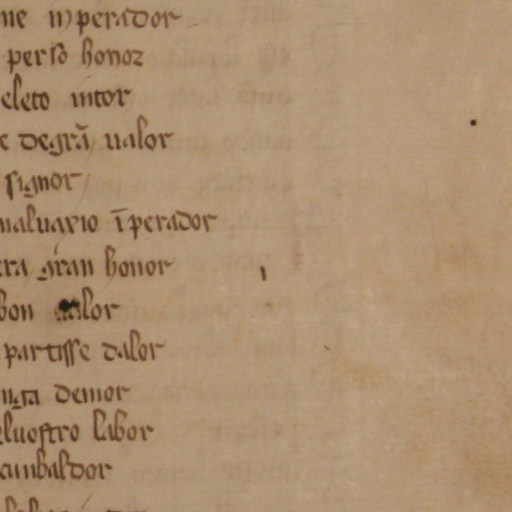 me inperador
perso honor
eleto intor
e degrã ualor
signor
maluaxio ĩperador
era gran honor
bon ualor
partisse dalor
nga demor
eluostro labor
cunbaldor